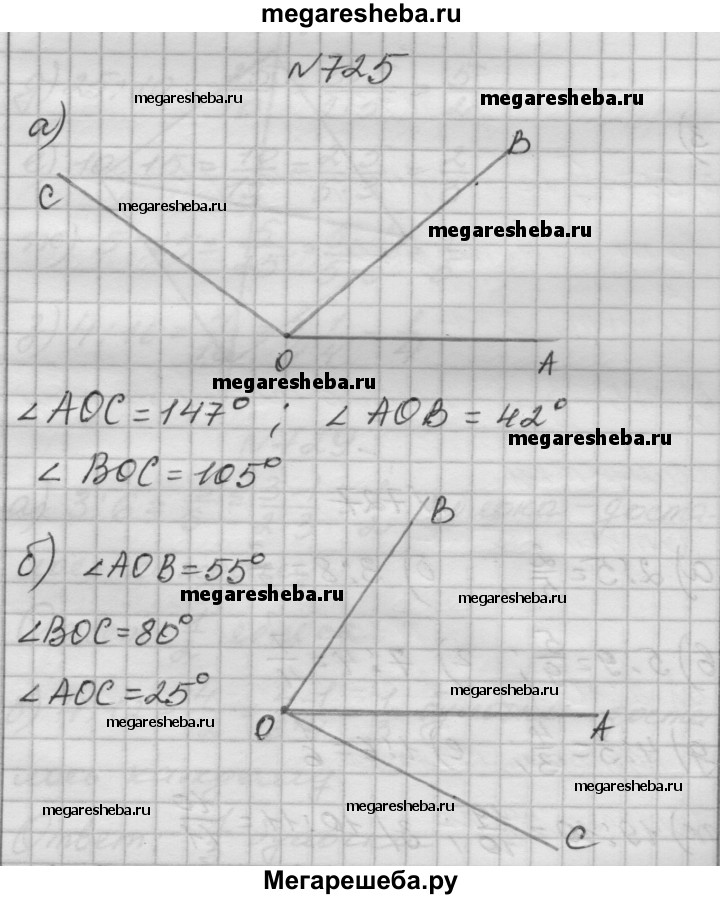 megaresheba.ru
№725
megaresheba.ru
megaresheba.ru
а)
B
C
megaresheba.ru
megaresheba.ru
O
A
megaresheba.ru
∠AOC = 147° ; ∠AOB = 42°
megaresheba.ru
∠BOC = 105°
B
б) ∠AOB = 55°
megaresheba.ru
megaresheba.ru
∠BOC = 80°
∠AOC = 25°
megaresheba.ru
megaresheba.ru
O
A
megaresheba.ru
megaresheba.ru
megaresheba.ru
C
Мегарешеба.ру